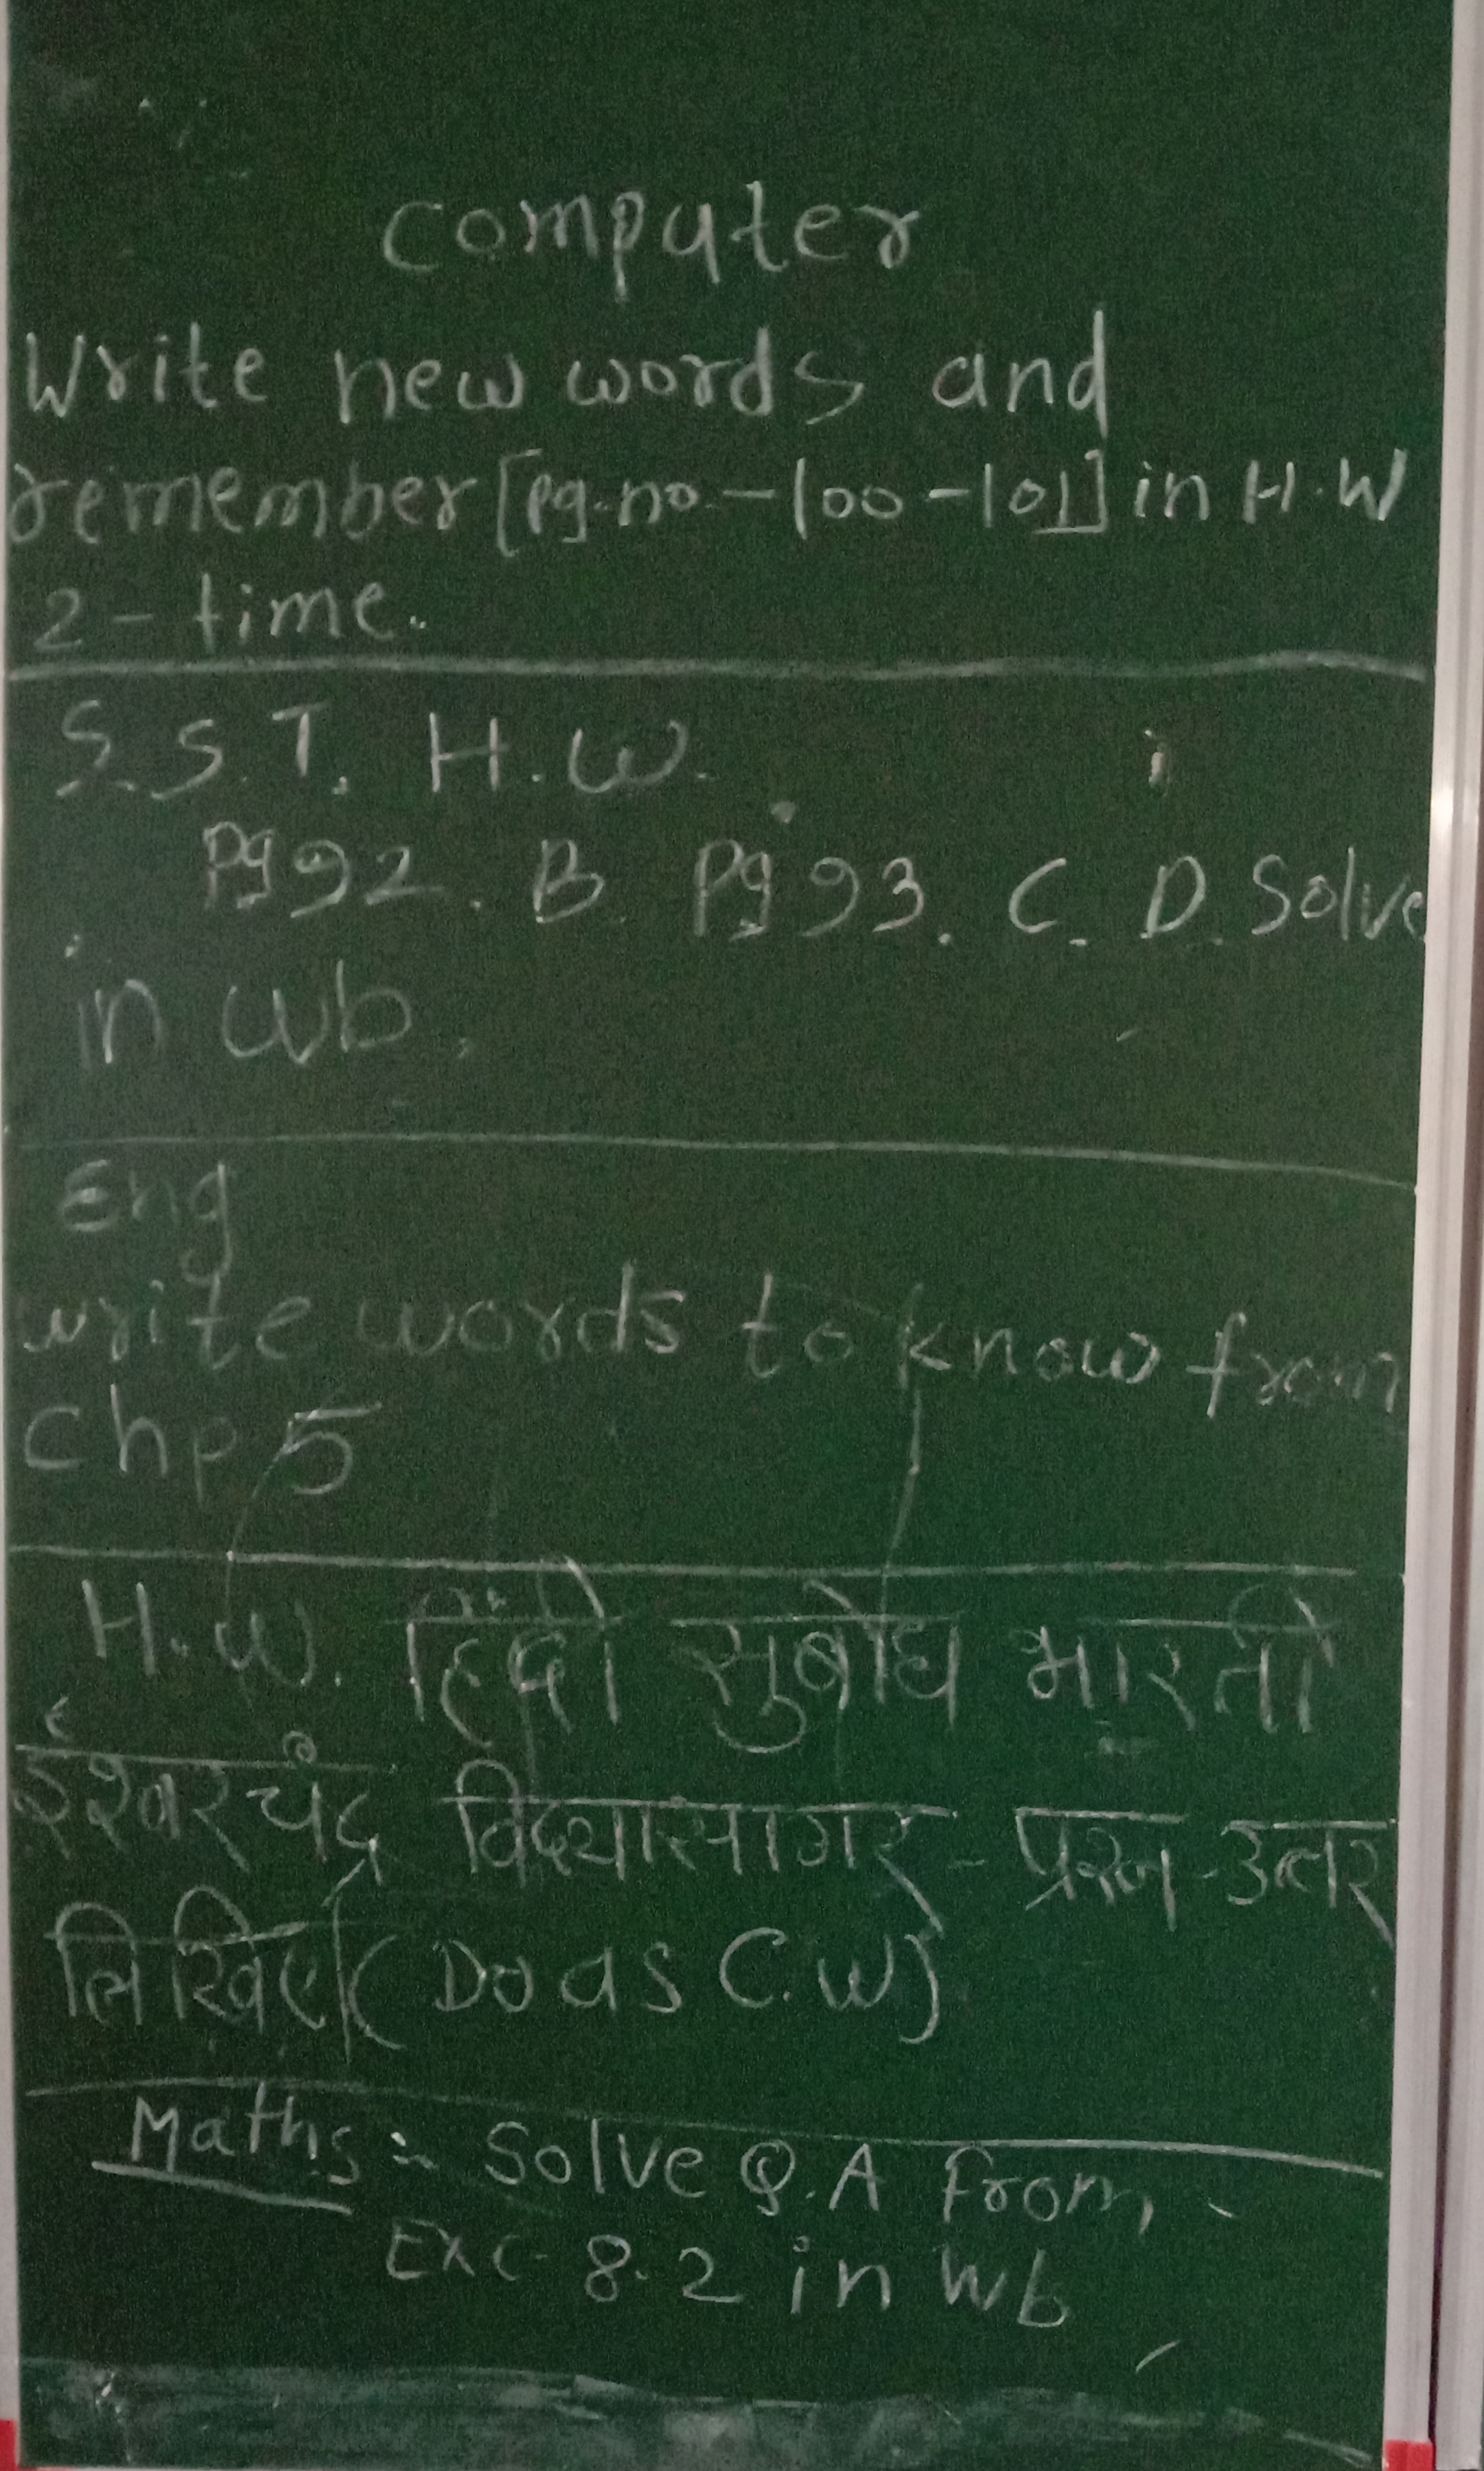 computer
Write new words and
remember [pg.no.-100-101] in H.W
2-time.
S.S.T. H.W.
Pg 92. B. Pg 93. C. D. Solve
in wb.
Eng
write words to know from
Chp 5
H.W. हिंदी सुबोध भारती
ईश्वरचंद्र विद्यासागर - प्रश्न-उत्तर
लिखिए। (Do as C.W)
Maths:- Solve Q.A from
Exc- 8.2 in Wb